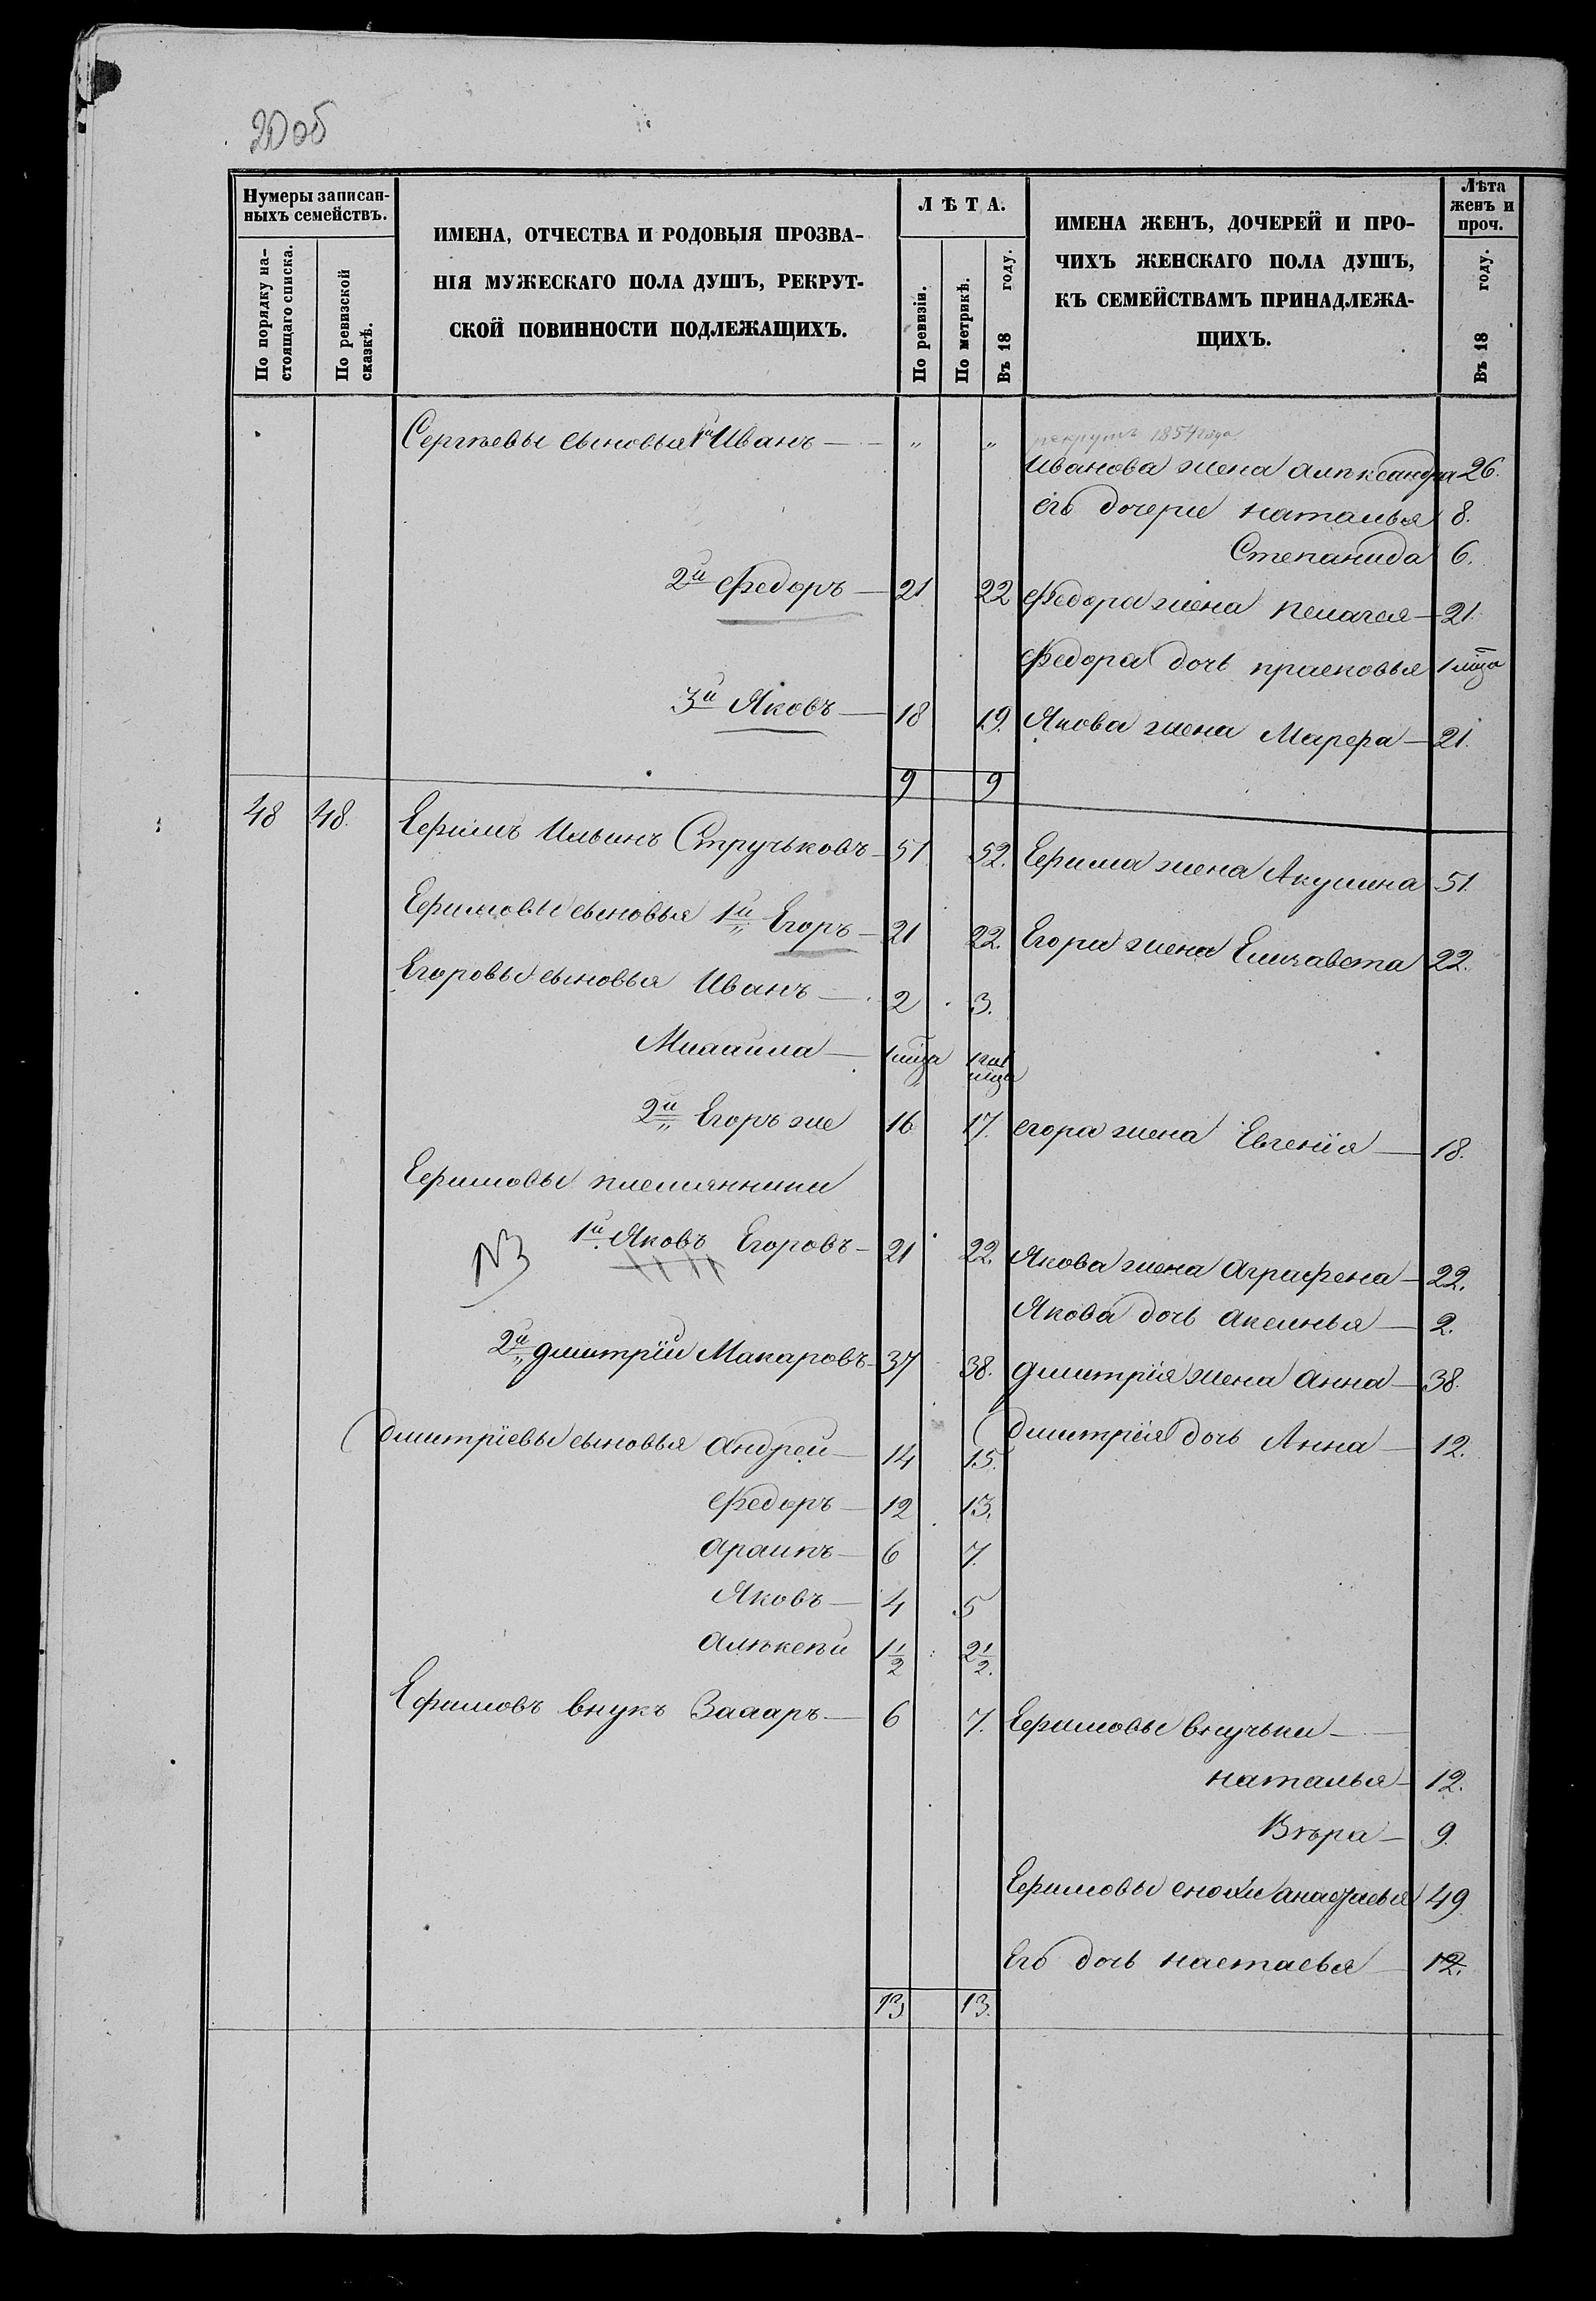 20 об
Нумеры записан-
ныхъ семействъ.
По порядку на-
стоящаго списка.
По ревизской
сказкѣ.
ИМЕНА, ОТЧЕСТВА И РОДОВЫЯ ПРОЗВА-
НІЯ МУЖЕСКАГО ПОЛА ДУШЪ, РЕКРУТ-
СКОЙ ПОВИННОСТИ ПОДЛЕЖАЩИХЪ.
ЛѢТА.
По ревизіи.
По метрикѣ.
Въ 18 году.
ИМЕНА ЖЕНЪ, ДОЧЕРЕЙ И ПРО-
ЧИХЪ ЖЕНСКАГО ПОЛА ДУШЪ,
КЪ СЕМЕЙСТВАМЪ ПРИНАДЛЕЖА-
ЩИХЪ.
Лѣта
женъ и
проч.
Въ 18 году.
рекрутъ 1854 года
Сергѣевы сыновья 1й Иванъ — „ „
Иванова жена алѣксандра 26.
его дочери наталья 8.
Степанида 6.
2й Федоръ — 21 22 Федора жена пелагея — 21.
Федора дочь прасковья 1 мѣца
3й Яковъ — 18 19. Якова жена Марфа — 21.
9 9
48 48. Ефимъ Ильинъ Стручьковъ — 51 52. Ефима жена Акулина 51.
Ефимовы сыновья 1й Егоръ — 21 22. Егора жена Елизавета 22.
Егоровы сыновья Иванъ — 2 3.
Михаила — 1 мѣца 1 год мѣца
2й Егоръ же 16 17. егора жена Евгенія — 18.
Ефимовы племянники
№3 1й Яковъ Егоровъ — 21 22. Якова жена аграфена — 22.
Якова дочь аксинья — 2.
2й дмитрій Макаровъ — 37 38. дмитрія жена анна — 38.
дмитріевы сыновья андрей — 14 15. дмитрія дочь Анна — 12.
Федоръ — 12 13.
архипъ — 6 7.
Яковъ — 4 5
алѣксѣй 1½ 2½.
Ефимовъ внукъ Захаръ — 6 7. Ефимовы внучьки —
наталья — 12.
Вѣра — 9.
Ефимовы снохи анастасья 49
Его дочь настасья — 12.
13 13.